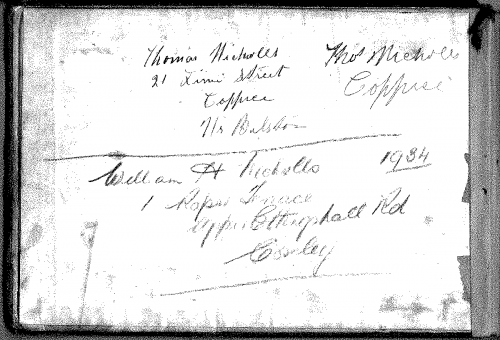 Thomas Nicholls
21 Lime Street
Coppice
Nr Bilston
Thos Nicholls
Coppice
William H Nicholls
1934
1 Roper Terrace
Upper Ettingshall Rd
Coseley